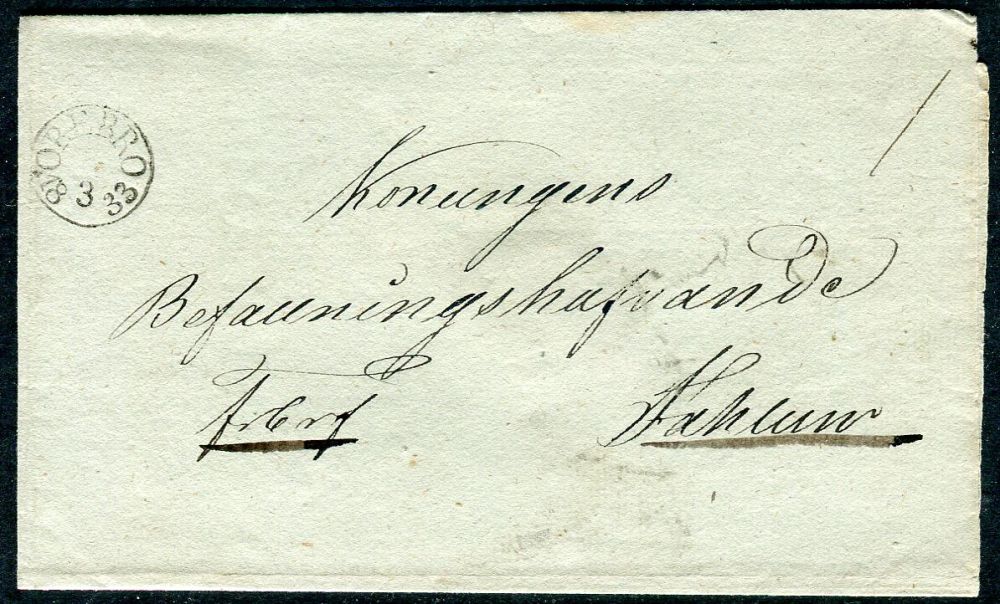 ÖREBRO
8
3
33
Konungens
Befallningshafvande
frbrf Fahlun